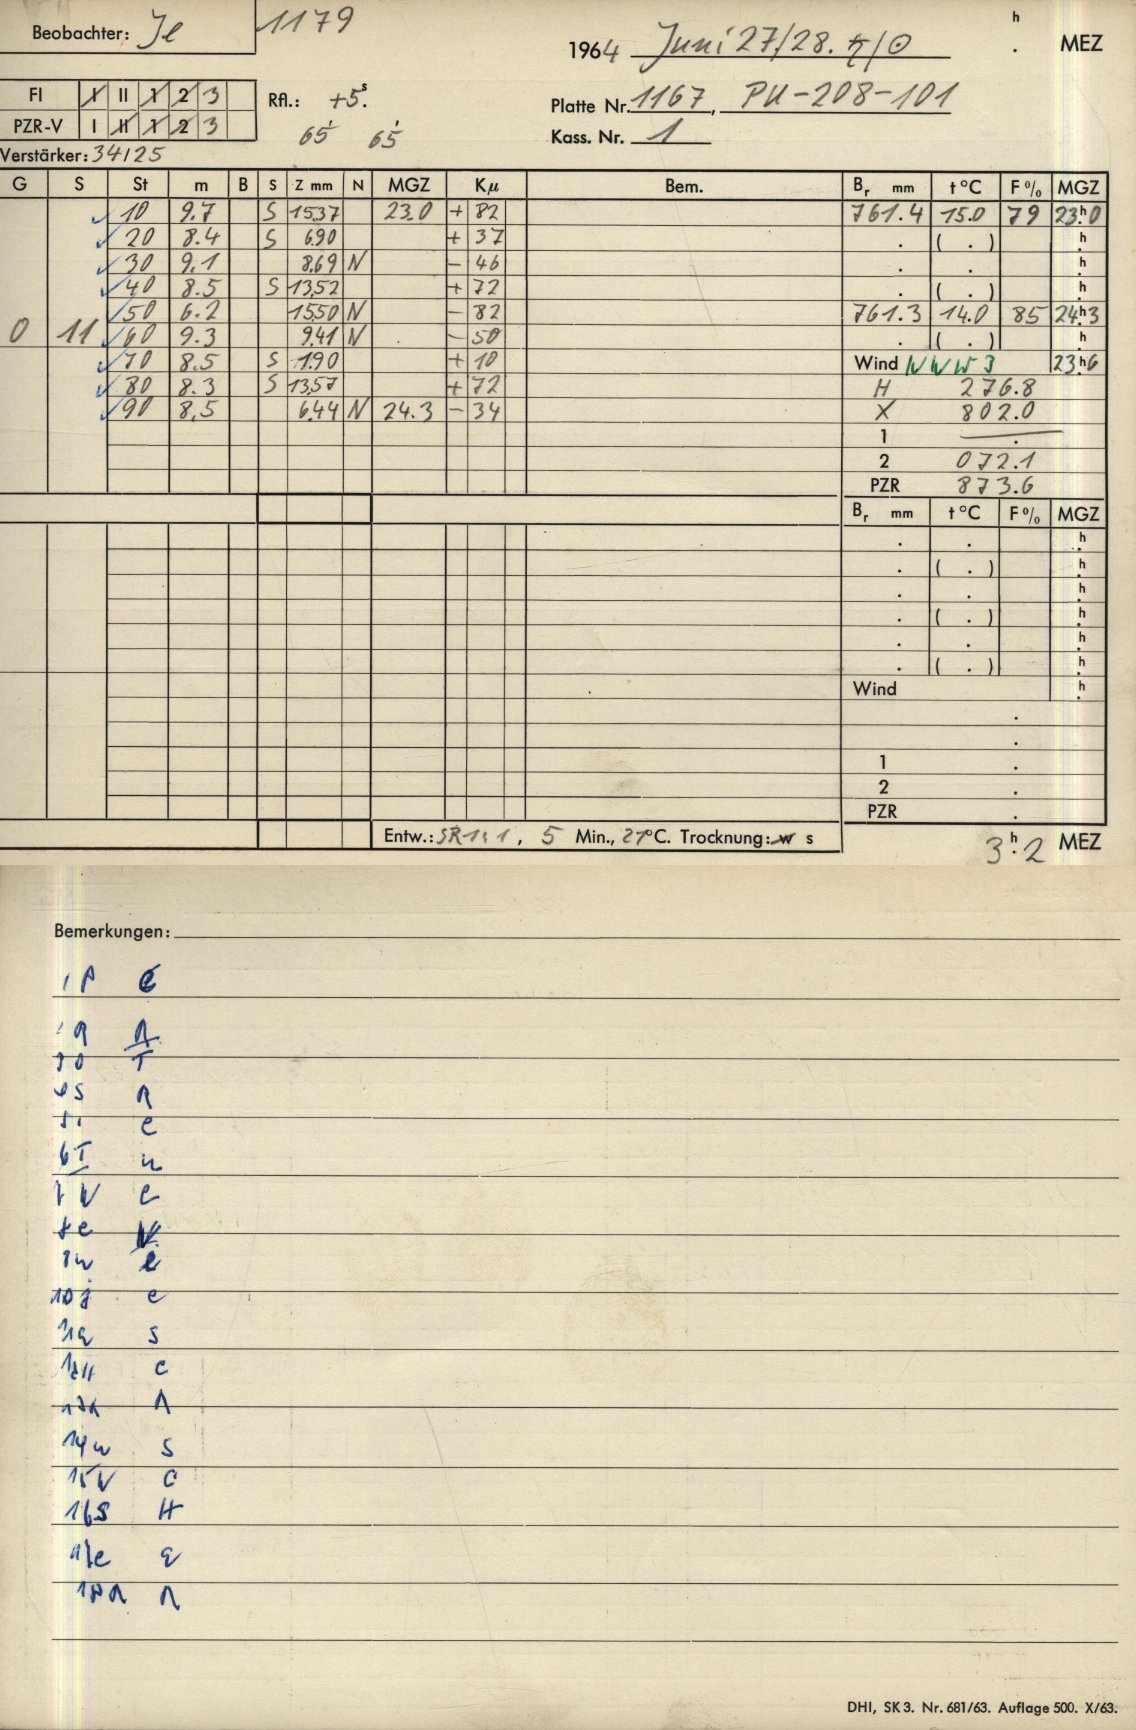 Beobachter: Jl 1179
h
1964 Juni 27/28. ♄/☉ . MEZ
FI I II 1 2 3
PZR-V I II 1 2 3
Rfl.: +5s.
65 65
Platte Nr. 1167, PU-208-101
Kass. Nr. 1
Verstärker: 34125
G S St m B S Z mm N MGZ Kμ Bem. Br mm t °C F % MGZ
10 9.7 S 15.37 23.0 + 82 761.4 15.0 79 23h.0
20 8.4 S 6.90 + 37 . ( . ) h.
30 9.1 8.69 N - 46 . . h.
40 8.5 S 13.52 + 72 . ( . ) h.
50 6.2 15.50 N - 82 761.3 14.0 85 24h.3
0 11 60 9.3 9.41 N - 50 . ( . ) h.
70 8.5 S 1.90 + 10 Wind NWW 3 23h.6
80 8.3 S 13.57 + 72 H 276.8
90 8.5 6.44 N 24.3 - 34 X 802.0
1 — .
2 072.1
PZR 873.6
Br mm t °C F % MGZ
. . h.
. ( . ) h.
. . h.
. ( . ) h.
. . h.
. ( . ) h.
Wind h.
.
.
1 .
2 .
PZR .
Entw.: SR 1:1, 5 Min., 21°C. Trocknung: w s
3h.2 MEZ
Bemerkungen:
1 P e
A
30 T
S
e
6T u
V e
8e V
e
10 j e
s
12H c
A
14w s
15V c
16S H
e
18
DHI, SK 3. Nr. 681/63. Auflage 500. X/63.